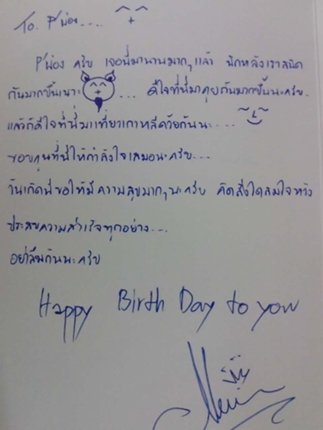 To. P'น้อง....
P'น้อง ครับ เจอพี่มานานมากๆแล้ว ปีหลังเราสนิท
กันมากขึ้นเนาะ .... ดีใจที่พี่มาคุยกันมากขึ้นนะครับ.
แล้วก็ดีใจที่พี่มาเที่ยวเกาหลีด้วยกันนะ....
ขอบคุณที่พี่ให้กำลังใจเสมอนะครับ...
วันเกิดพี่ขอให้มีความสุขมากๆนะครับ คิดสิ่งใดสมใจหวัง
ประสบความสำเร็จทุกอย่าง...
อย่าลืมกันนะครับ
Happy Birth Day to you